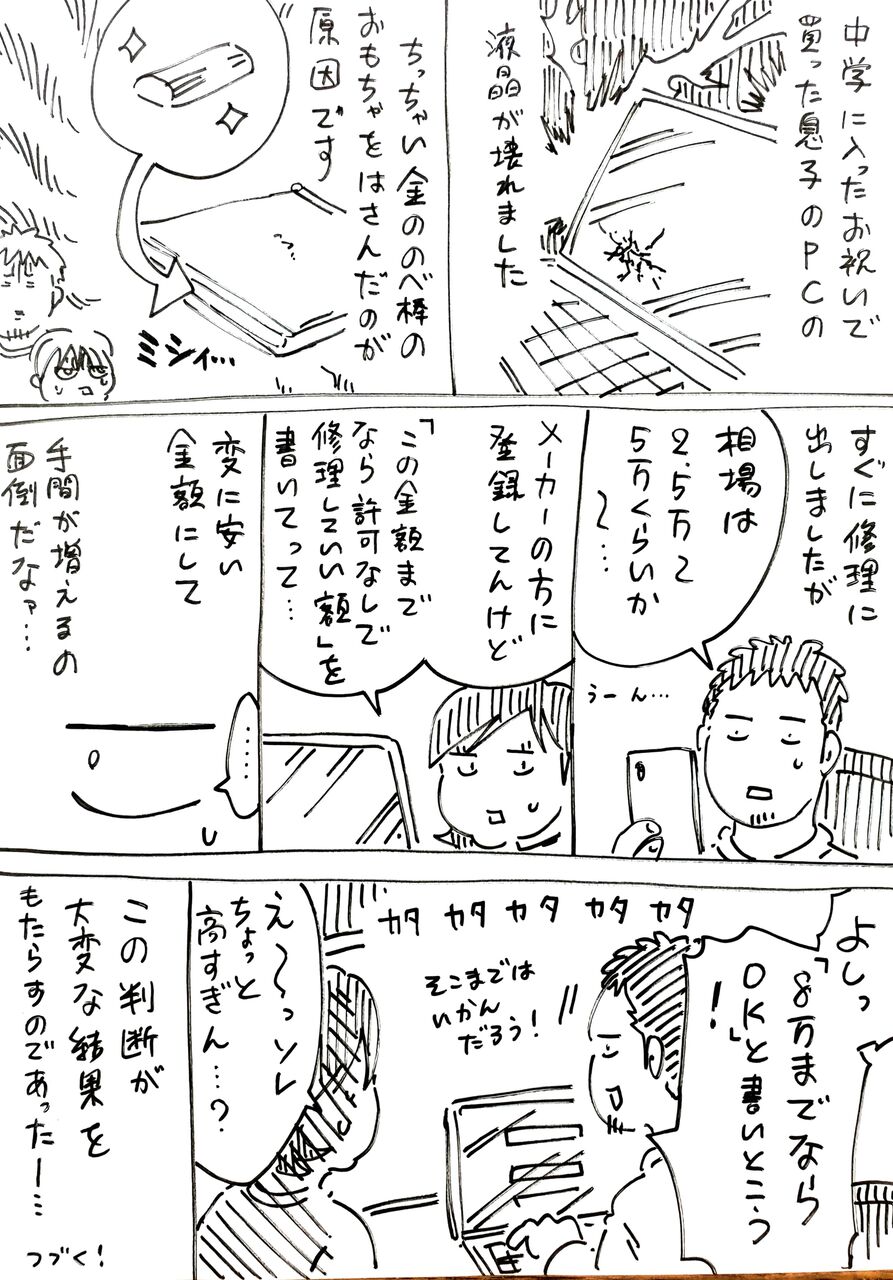 中学に入ったお祝いで
買った息子のPCの
液晶が壊れました
ちっちゃい金ののべ棒の
おもちゃをはさんだのが
原因です
ミシィ…
すぐに修理に
出しましたが
相場は
2.5万〜
5万くらいか
〜…
うーん…
メーカーの方に
登録してんけど
「この金額まで
なら許可なしで
修理していい額」を
書いてって…
変に安い
金額にして
手間が増えるの
面倒だなァ…
……
よしっ
「8万までなら
OK」と書いとこう
!
カタ カタ カタ カタ カタ
そこまでは
いかん
だろう!
え〜〜っソレ
ちょっと
高すぎん…?
この判断が
大変な結果を
もたらすのであったー…
つづく!